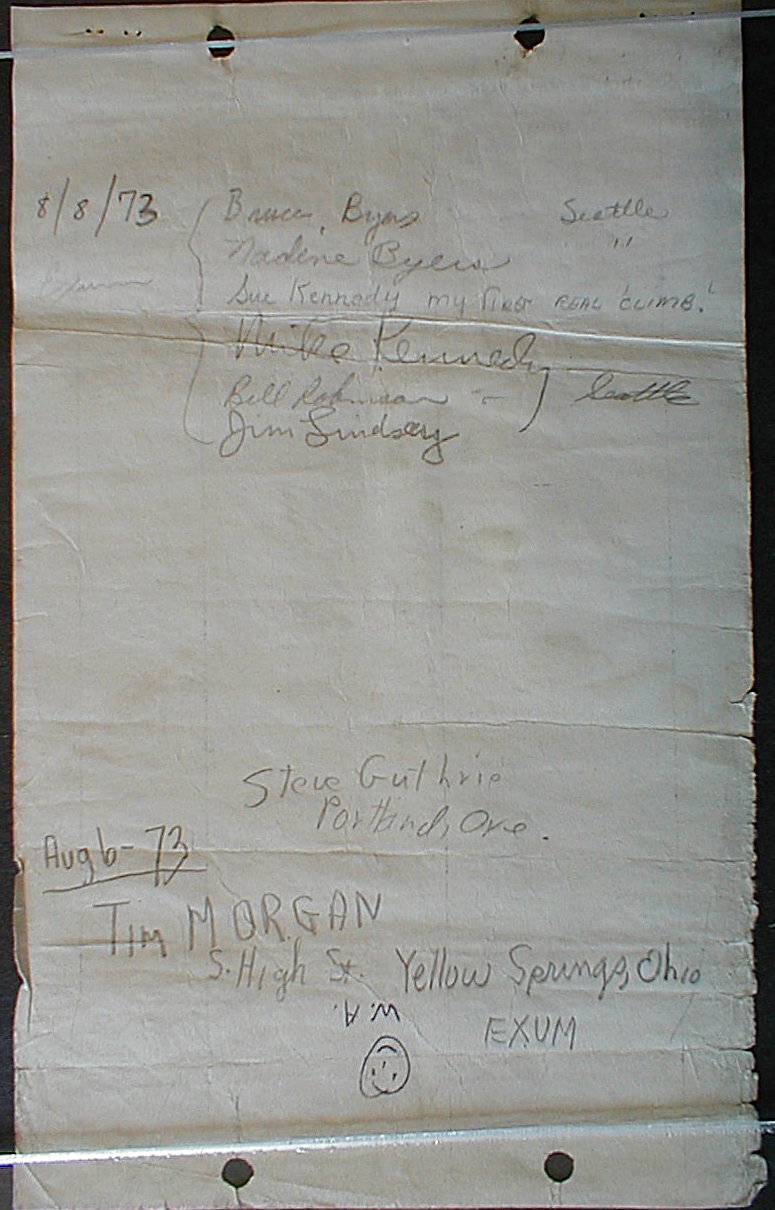 8/8/73 Bruce Byers Seattle
Nadine Byers "
Sue Kennedy my first REAL 'CLIMB!'
Mike Kennedy
Bill Robinson - Seattle
Jim Lindsay
Steve Guthrie
Portland, Ore.
Aug 6-73
TIM MORGAN
S. High St. Yellow Springs, Ohio
W. A.
EXUM